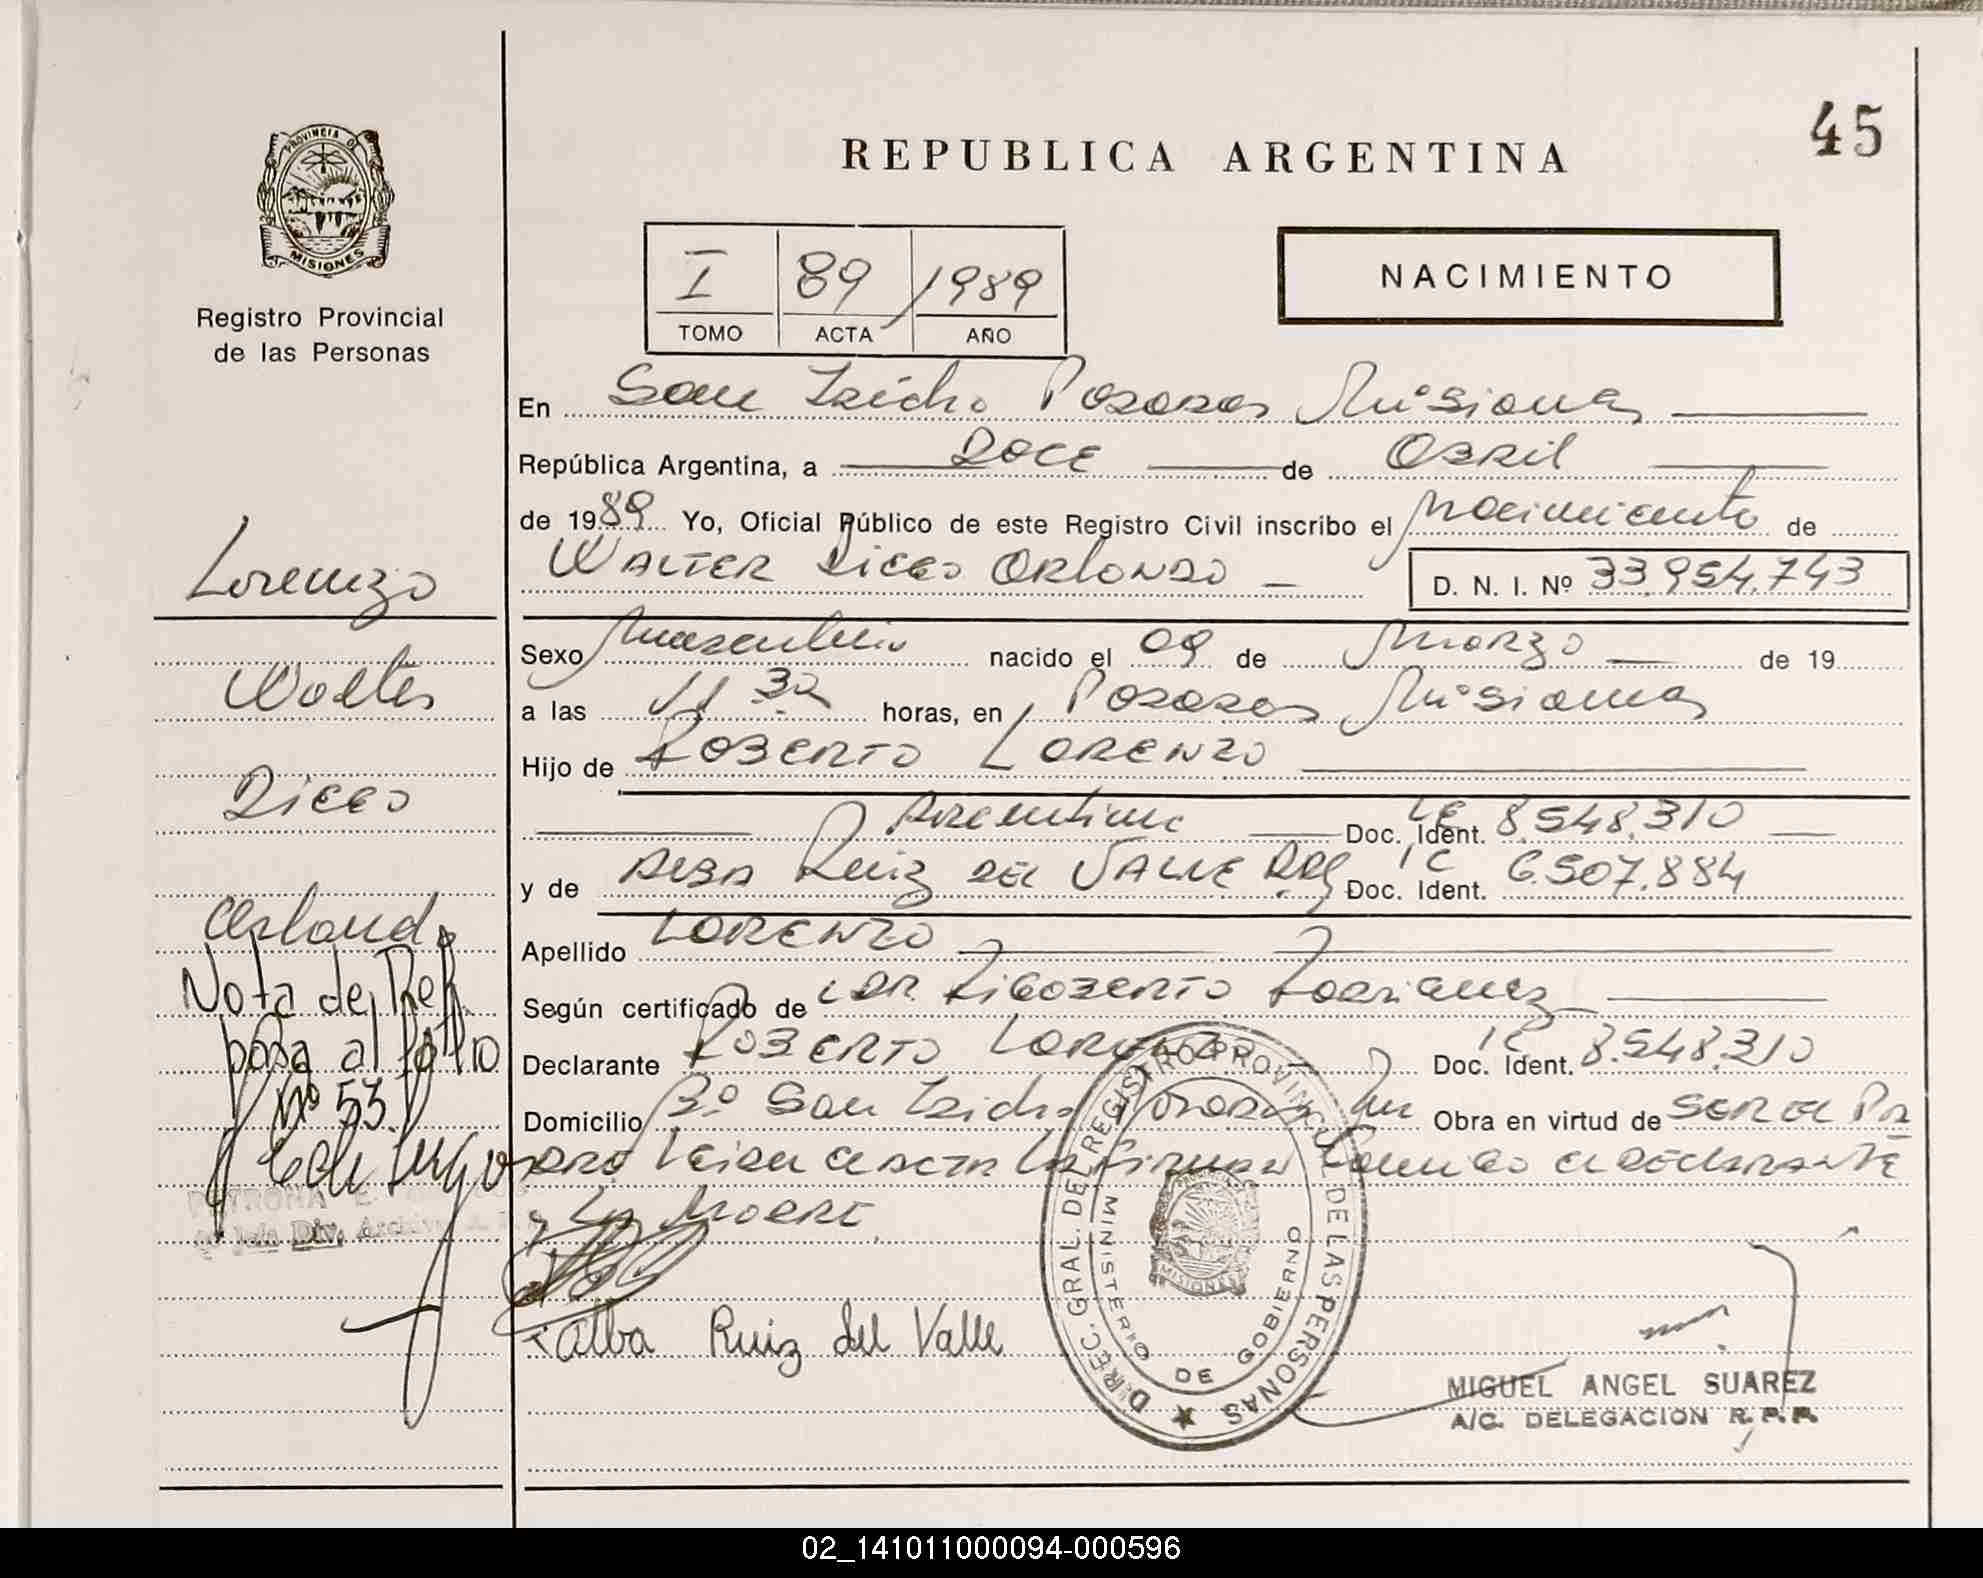 45
REPUBLICA ARGENTINA
PROVINCIA DE
MISIONES
Registro Provincial
de las Personas
I 89 1989
TOMO ACTA AÑO
NACIMIENTO
En San Isidro Posadas Misiones
República Argentina, a DOCE de Abril
de 1989 Yo, Oficial Público de este Registro Civil inscribo el Nacimiento de
WALTER DIEGO ORLANDO D. N. I. Nº 33.954.743
Sexo Masculino nacido el 09 de Marzo de 19
a las 11 30 horas, en Posadas Misiones
Hijo de ROBERTO LORENZO
Argentino Doc. Ident. LE 8.548.310
y de ALBA Ruiz DEL VALLE Doc. Ident. 6.507.884
Apellido LORENZO
Según certificado de DR. RIGOBERTO Rodriguez
Declarante ROBERTO LORENZO Doc. Ident. 8.548.310
Domicilio Bº San Isidro Posadas Obra en virtud de SER EL
Leida el ACTA La Firman Conmigo el DECLARANTE
y La MADRE
Alba Ruiz del Valle
Lorenzo
Walter
Diego
Orlando
Nota de Ref.
pasa al folio
Nº 53
Jefe Div. Archivo
DIREC. GRAL. DEL REGISTRO PROVINCIAL DE LAS PERSONAS
MINISTERIO DE GOBIERNO
MISIONES
MIGUEL ANGEL SUAREZ
A/C. DELEGACION R. P. P.
02_141011000094-000596